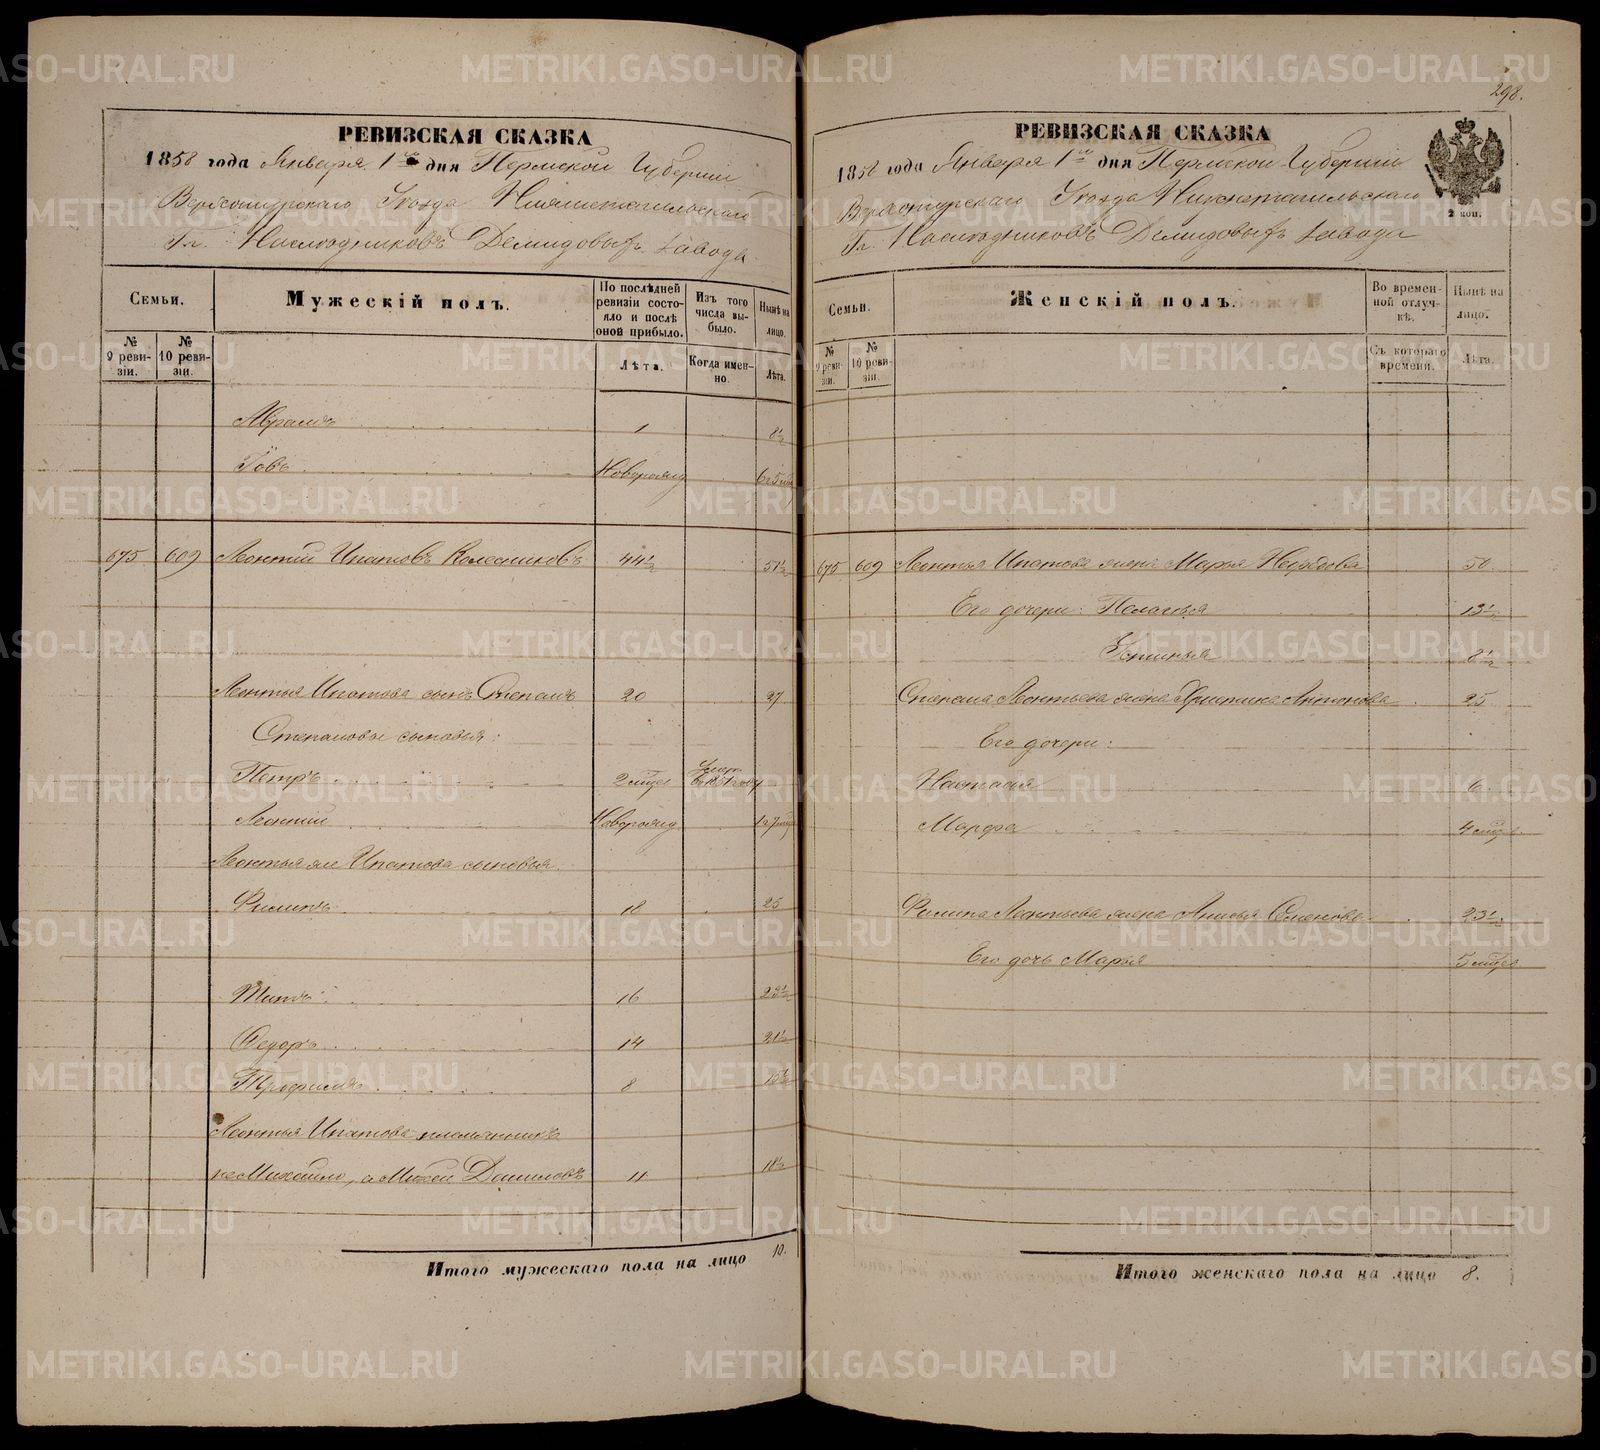 298.
РЕВИЗСКАЯ СКАЗКА
1858 года Января 1го дня Пермской Губернии
Верхотурскаго Уѣзда Нижнетагильскаго
Гг. Наслѣдниковъ Демидовыхъ завода
Семьи.
Мужескій полъ.
По послѣдней ревизіи состояло и послѣ оной прибыло.
Изъ того числа выбыло.
Нынѣ на лицо.
№ 9 ревизіи.
№ 10 ревизіи.
Лѣта.
Когда именно.
Лѣта.
Абрамъ 1 8½
Іовъ Новорожд
675 609 Леонтій Ипатовъ Колесниковъ 44½ 51½
Леонтья Ипатова сынъ Степанъ 20 27
Степановы сыновья:
Петръ 2 мѣсц
Леонтій Новорожд
Леонтья же Ипатова сыновья
Филипъ 18 25
Титъ 16 23½
Федоръ 14 21½
Трофимъ 8 15½
Леонтья Ипатова племянникъ
не Михайло, а Михей Даниловъ 11 18½
Итого мужескаго пола на лицо 10.
РЕВИЗСКАЯ СКАЗКА
1858 года Января 1го дня Пермской Губерніи
Верхотурскаго Уѣзда Нижнетагильскаго
Гг. Наслѣдниковъ Демидовыхъ завода
2 коп.
Семьи.
Женскій полъ.
Во временной отлучкѣ.
Нынѣ на лицо.
№ 9 ревизіи.
№ 10 ревизіи.
Съ котораго времени.
Лѣта.
675 609 Леонтья Ипатова жена Марья 50
Его дочери: Пелагея 13½
Устинья 8½
Степана Леонтьева жена Антонова 25
Его дочери:
Настасья 6
Марфа 4 мѣсц
Филипа Леонтьева жена Анисья Семенова 23½
Его дочь Марья 5 мѣсц
Итого женскаго пола на лицо 8.
METRIKI.GASO-URAL.RU